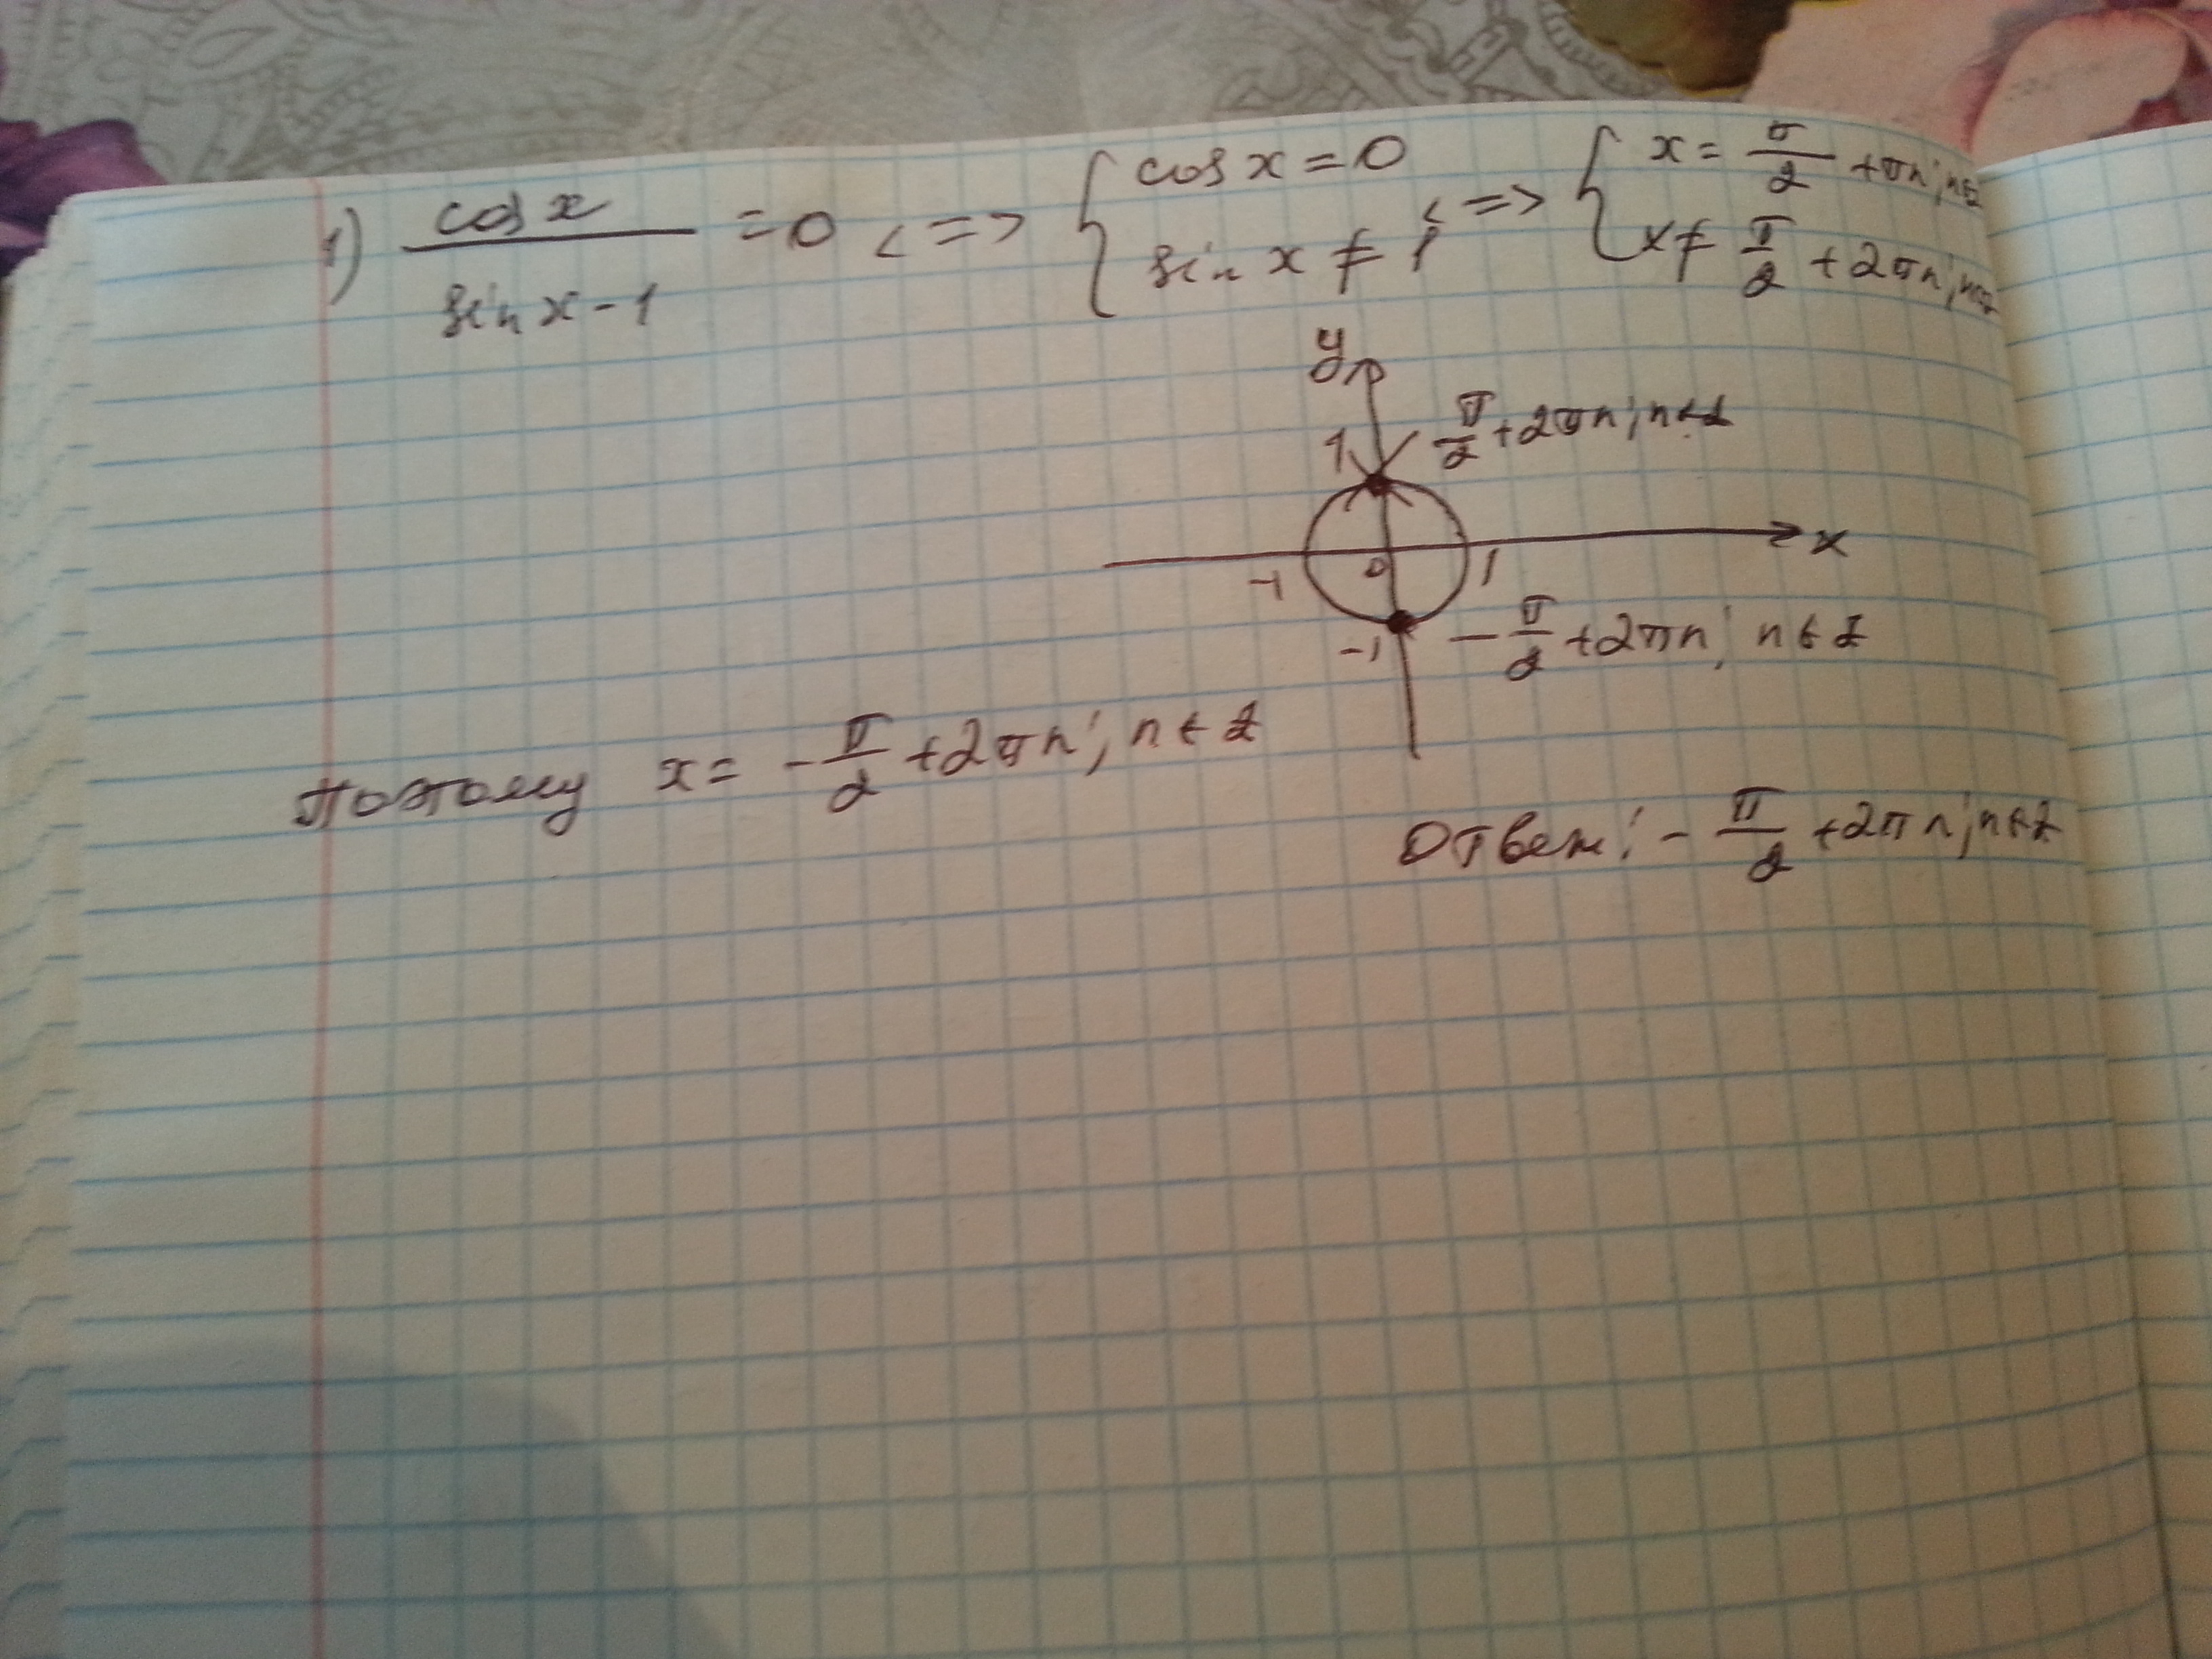 1) cos x / sin x - 1 = 0 <=> { cos x = 0 sin x ≠ 1 <=> { x = π/2 + πn; n∈Z x ≠ π/2 + 2πn; n∈Z
y
1 π/2 + 2πn; n∈Z
-1 0 1 x
-1 -π/2 + 2πn; n∈Z
Поэтому x = -π/2 + 2πn; n∈Z
Ответ: -π/2 + 2πn; n∈Z